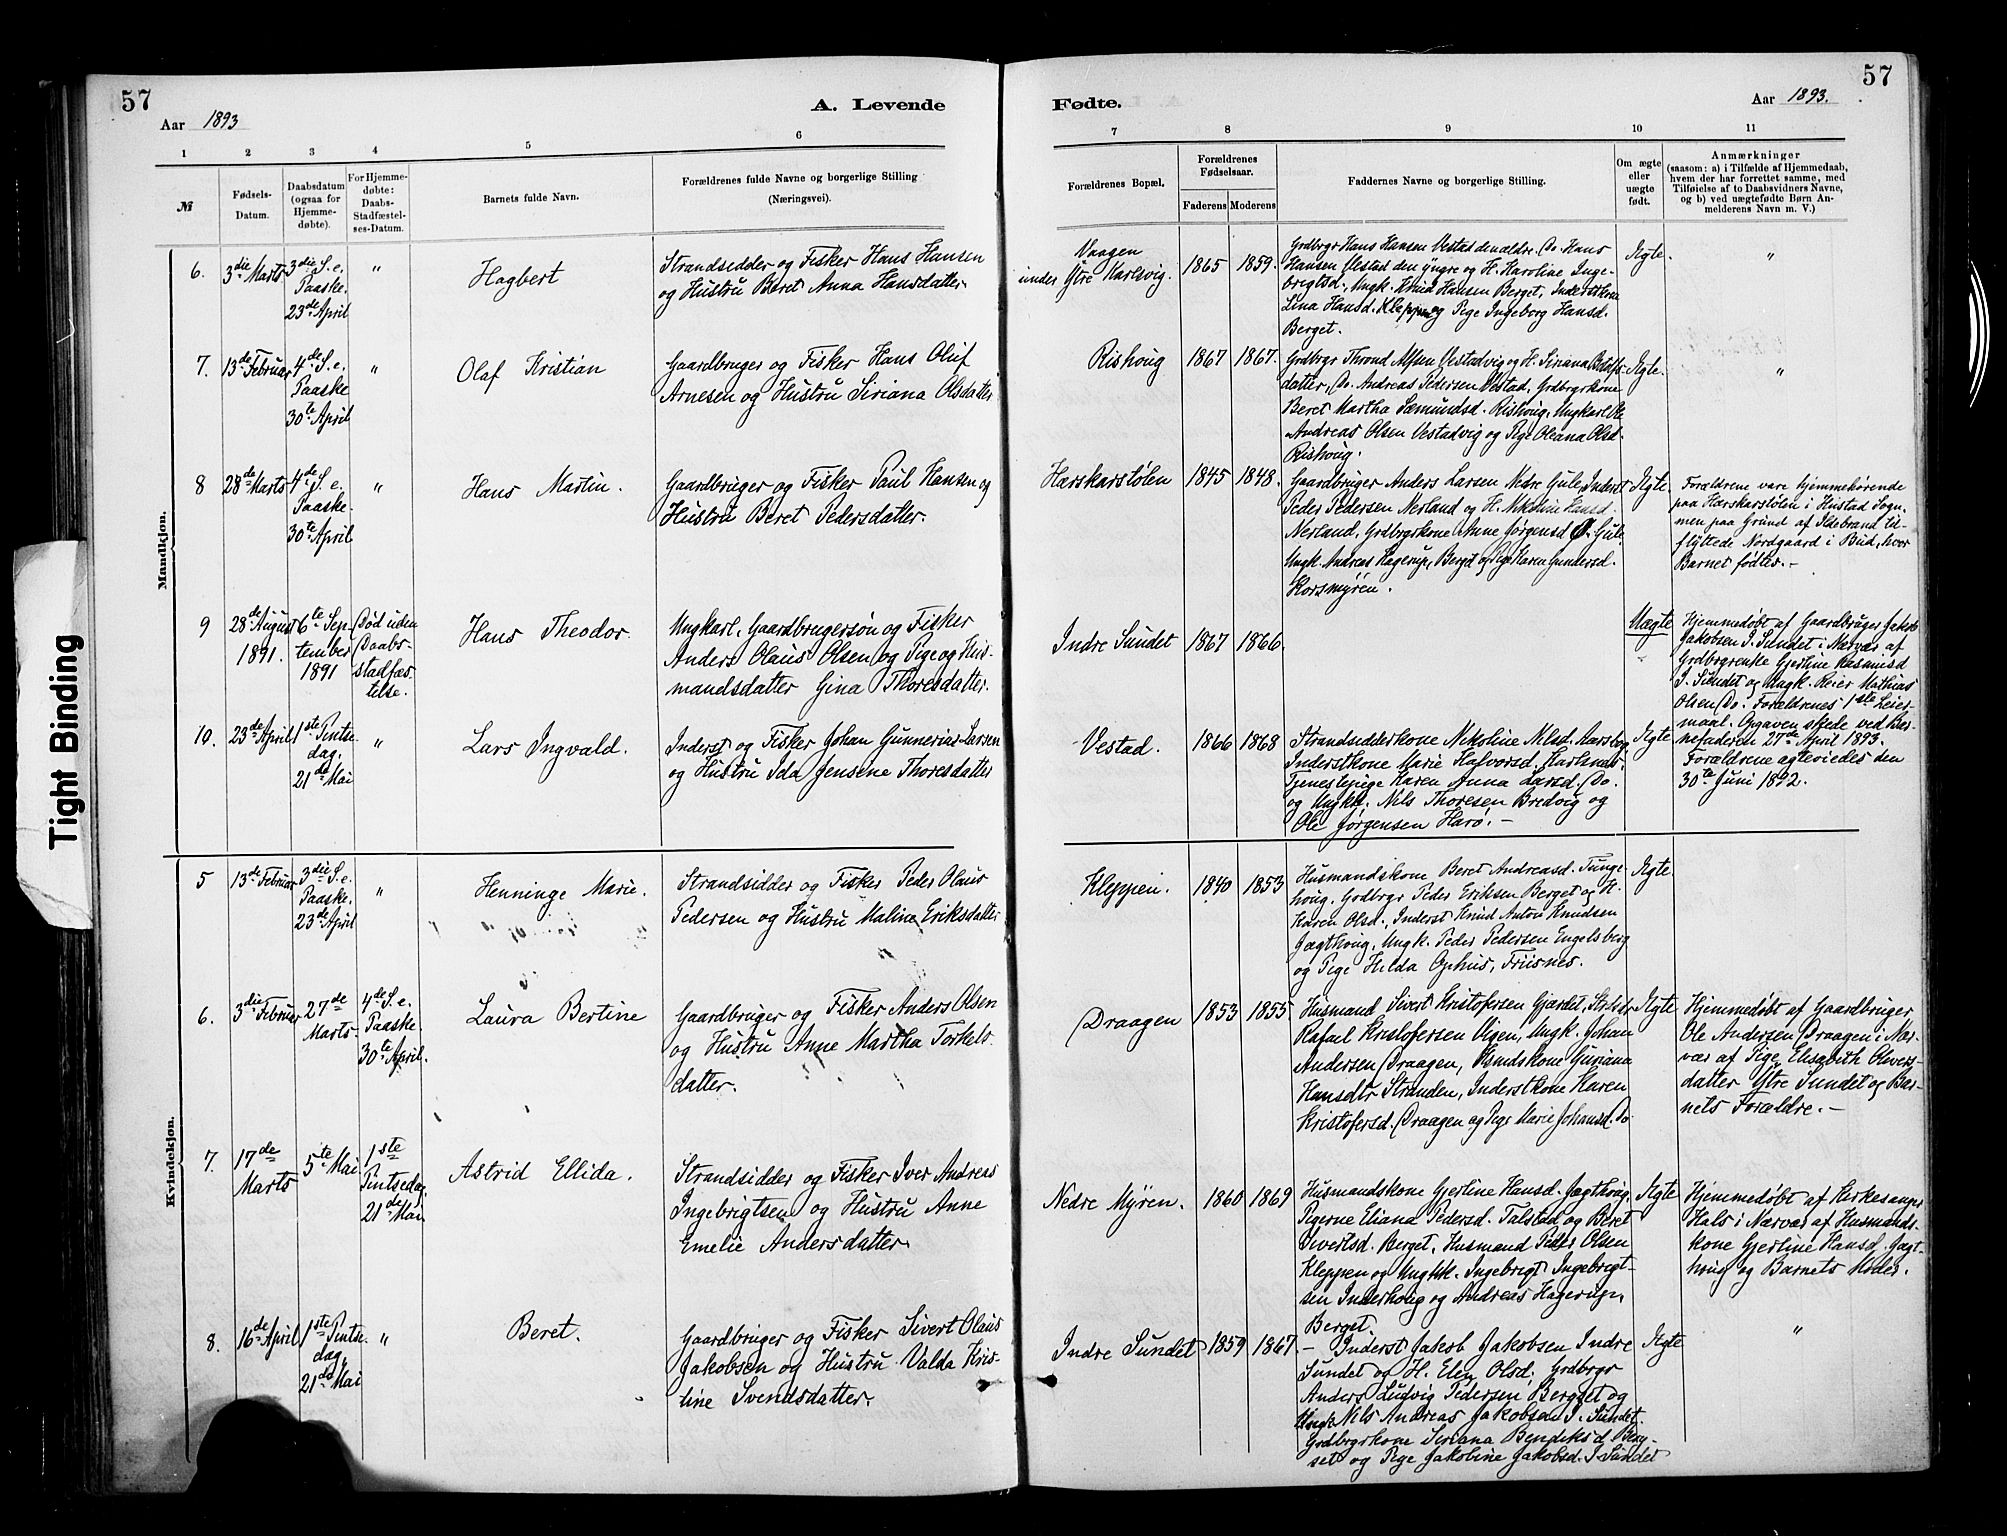 57
A. Levende
Aar 1893
1 2 3 4 5 6
№
Fødsels-
Datum.
Daabsdatum
(ogsaa for
Hjemme-
døbte).
For Hjemme-
døbte:
Daabs-
Stadfæstel-
ses-Datum.
Barnets fulde Navn.
Forældrenes fulde Navne og borgerlige Stilling
(Næringsvei).
Mandkjøn.
6.
3die Marts
3die S. e.
Paaske.
23de April
"
Hagbert
Strandsidder og Fisker Hans Hansen
og Hustru Beret Anna Hansdatter.
7.
13de Februar
4de S. e.
Paaske
30te April
"
Olaf Kristian
Gaardbruger og Fisker Hans Oluf
Arnesen og Hustru Siriana Olsdatter
8
28de Marts
4de S. e.
Paaske.
30te April
"
Hans Martin.
Gaardbruger og Fisker Paul Hansen og
Hustru Beret Pedersdatter.
9
28de August
1891.
6te Sep-
tember
1891
Død uden
Daabs-
stadfæs-
telse.
Hans Theodor.
Ungkarl, Gaardbrugersøn og Fisker
Anders Olaus Olsen og Pige og Hus-
mandsdatter Gina Thoresdatter.
10.
23de April
1ste Pintse-
dag.
21de Mai
"
Lars Ingvald.
Inderst og Fisker Johan Gunnerius Larsen
og Hustru Ida Jensene Thoresdatter
Kvindekjøn.
5
13de Februar
3die S. e.
Paaske.
23de April
"
Henninge Marie.
Strandsidder og Fisker Peder Olaus
Pedersen og Hustru Maline Eriksdatter
6.
3die Februar
27de
Marts
4de S. e.
Paaske.
30te April.
Laura Bertine
Gaardbruger og Fisker Anders Olsen
og Hustru Anne Martha Torkels-
datter.
7.
17de
Marts
5te Mai
1ste
Pintsedag
21de Mai
Astrid Ellida.
Strandsidder og Fisker Iver Andreas
Ingebrigtsen og Hustru Anne
Emelie Andersdatter.
8.
16de April
1ste Pintse-
dag.
21de Mai
"
Beret.
Gaardbruger og Fisker Sivert Olaus
Jakobsen og Hustru Valda Kris-
tine Svendsdatter.
Tight Binding
57
Fødte.
Aar 1893.
7 8 9 10 11
Forældrenes Bopæl.
Forældrenes
Fødselsaar.
Faderens Moderens
Faddernes Navne og borgerlige Stilling.
Om ægte
eller
uægte
født.
Anmærkninger
(saasom: a) i Tilfælde af Hjemmedaab,
hvem der har forrettet samme, med
Tilføielse af to Daabsvidners Navne,
og b) ved uægtefødte Børn An-
melderens Navn m. V.)
Vaagen
under Ytre Karlsvig.
1865 1859.
Grdbrgr Hans Hansen Vestad den ældre. Do. Hans
Hansen Vestad den yngre og H. Karoline Inge-
brigtsd., Ungk. Knud Hansen Berget, Inderstkone
Lina Hansd. Kleppen og Pige Ingeborg Hansd.
Berget.
Ægte.
"
Rishoug
1867 1867.
Grdbrgr Thrond Alfsen Vestadvig og H. Siriana
datter, Do. Andreas Pedersen Vestad, Grdbrgrkone
Beret Martha Sæmundsd. Rishoug, Ungkarl Ole
Andreas Olsen Vestadvig og Pige Oleana Olsd.
Rishoug.
Ægte.
"
Harskarstølen
1845 1848.
Gaardbruger Anders Larsen Nedre Gule, Inderst
Peder Pedersen Nerland og H. Nikoline Hansd.
Nerland, Grdbrgrkone Anne Jørgensd. Ø. Gule
Ungk. Andreas Hagerup, Berget og Pige Karen Gundersd.
Korsmyren.
Ægte.
Forældrene vare hjemmehørende
paa Harskarstølen i Hustad Sogn,
men paa Grund af Ildebrand til-
flyttede Nordgaard i Bud, hvor
Barnet fødtes.-
Indre Sundet
1867 1866
Uægte
Hjemmedøbt af Gaardbruger Jakob
Jakobsen I. Sundet i Nærvær af
Grdbrgrenke Gjertine Rasmusd
I. Sundet og Ungk. Reier Mathias
Olsen Do. Forældrenes 1ste Leier-
maal. Opgaven skede ved Bar-
nefaderen 27de April 1893.
Forældrene ægteviedes den
30te Juni 1892.
Vestad.
1866 1868
Strandsidderkone Nikoline Nilsd. Aarsbog
Inderstkone Marie Halvorsd. Harhnas,
Tjenestepige Karen Anna Larsd. Do.
og Ungkk. Nils Thoresen Bredvig og
Ole Jørgensen Harø.-
Ægte
Kleppen.
1840 1853
Husmandskone Beret Andreasd. Tunge-
houg, Grdbrgr Peder Eriksen Berget og H.
Karen Olsd., Inderst Knud Anton Knudsen
Jagthoug, Ungk. Peder Pedersen Engelsberg
og Pige Hilda Ophus, Friisnes.
Ægte
Draagen
1853 1855
Husmand Sivert Kristofersen Gjærdet, Strdsdr
Rafael Kristofersen Olgen, Ungk. Johan
Andersen Draagen, Hsmdskone Guriana
Hansdtr Stranden, Inderstkone Karen
Kristofersd. Draagen og Pige Marie Johansd. Do
Ægte
Hjemmedøbt af Gaardbruger
Ole Andersen Draagen i Nær-
vær af Pige Elisabeth Olvers-
datter Ytre Sundet og Bar-
nets Forældre.-
Nedre Myren.
1860 1869
Husmandskone Gjertine Hansd. Jagthoug,
Pigerne Eliana Pedersd. Talstad og Beret
Sivertsd. Berget, Husmand Peder Olsen
Kleppen og Ungkk. Ingebrigt Ingebrigt-
sen Inderhoug og Andreas Hagerup,
Berget.
Ægte
Hjemmedøbt af Kirkesanger
Hals i Nærvær af Husmands-
kone Gjertine Hansd. Jagt-
houg og Barnets Moder.
Indre Sundet
1859 1867.
- Inderst Jakob Jakobsen Indre
Sundet og H. Elen Olsd., Grdbrgr
Anders Ludvig Pedersen Berget og
Ungk. Nils Andreas Jakobsen I. Sundet.
Grdbrgrkone Seriana Bendiksd. Berg-
set og Pige Jakobine Jakobsd. I Sundet
Ægte
"